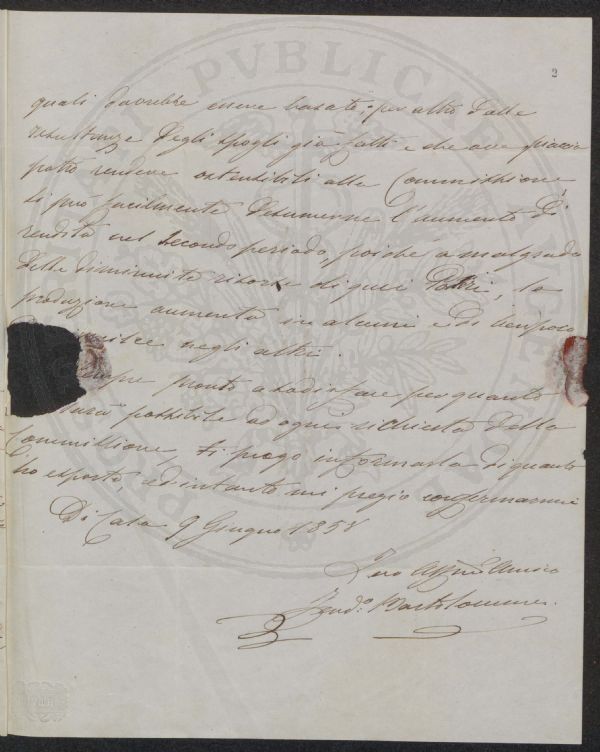 2
quali dovrebbe essere basate; per altro dalle
resultanze degli spogli già fatti e che ove piaccia
potrò rendere ostensibili alla Commissione,
si può facilmente desumerne l'aumento di
rendita nel secondo periodo, poiché a malgrado
delle diminuite risorse di quei Paesi, la
produzione aumenta in alcuni e di ben poco
negli altri.
pronto a sadisfare per quanto
sarà possibile ad ogni richiesta della
Commissione, ti prego informarla di quanto
ho esposto, ed intanto mi pregio confermarmi
Di Casa 9 Giugno 1858
Tuo Affmo Amico
Ferd.o Bartolommei
PVBLICAE